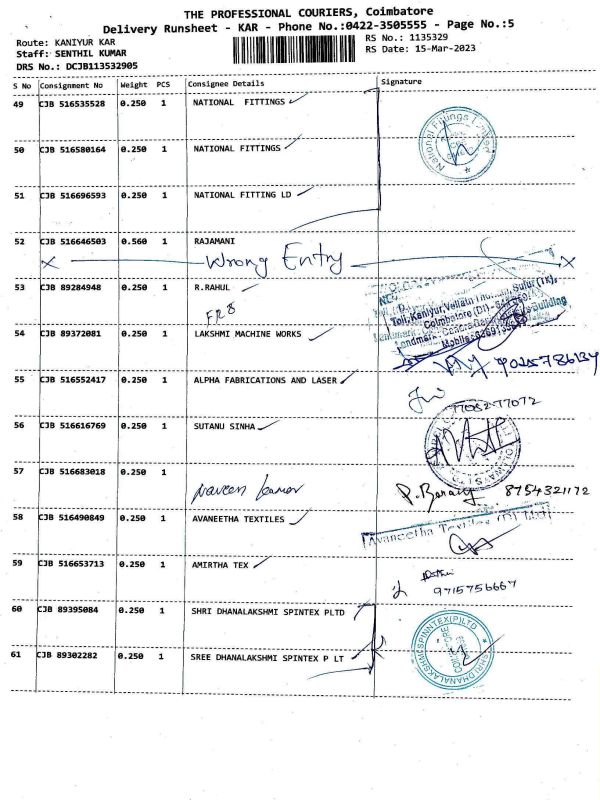 THE PROFESSIONAL COURIERS, Coimbatore
Delivery Runsheet - KAR - Phone No.:0422-3505555 - Page No.:5
Route: KANIYUR KAR
Staff: SENTHIL KUMAR
DRS No.: DCJB113532905
RS No.: 1135329
RS Date: 15-Mar-2023
S No Consignment No Weight PCS Consignee Details Signature
49 CJB 516535528 0.250 1 NATIONAL FITTINGS
50 CJB 516580164 0.250 1 NATIONAL FITTINGS
51 CJB 516696593 0.250 1 NATIONAL FITTING LD
52 CJB 516646503 0.560 1 RAJAMANI
x Wrong Entry x
53 CJB 89284948 0.250 1 R.RAHUL
54 CJB 89372081 0.250 1 LAKSHMI MACHINE WORKS
55 CJB 516552417 0.250 1 ALPHA FABRICATIONS AND LASER
77082 77072
56 CJB 516616769 0.250 1 SUTANU SINHA
57 CJB 516683018 0.250 1
naveen kumar
8754321172
58 CJB 516490849 0.250 1 AVANEETHA TEXTILES
Avaneetha Textiles (P) Ltd
59 CJB 516653713 0.250 1 AMIRTHA TEX
9715756667
60 CJB 89395084 0.250 1 SHRI DHANALAKSHMI SPINTEX PLTD
61 CJB 89302282 0.250 1 SREE DHANALAKSHMI SPINTEX P LT
SHRI DHANALAKSHMI SPINNTEX(P)LTD